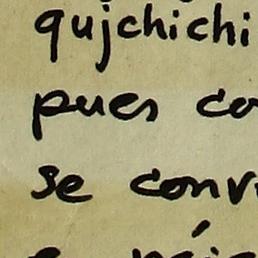 qujchichi
pues co
se conv